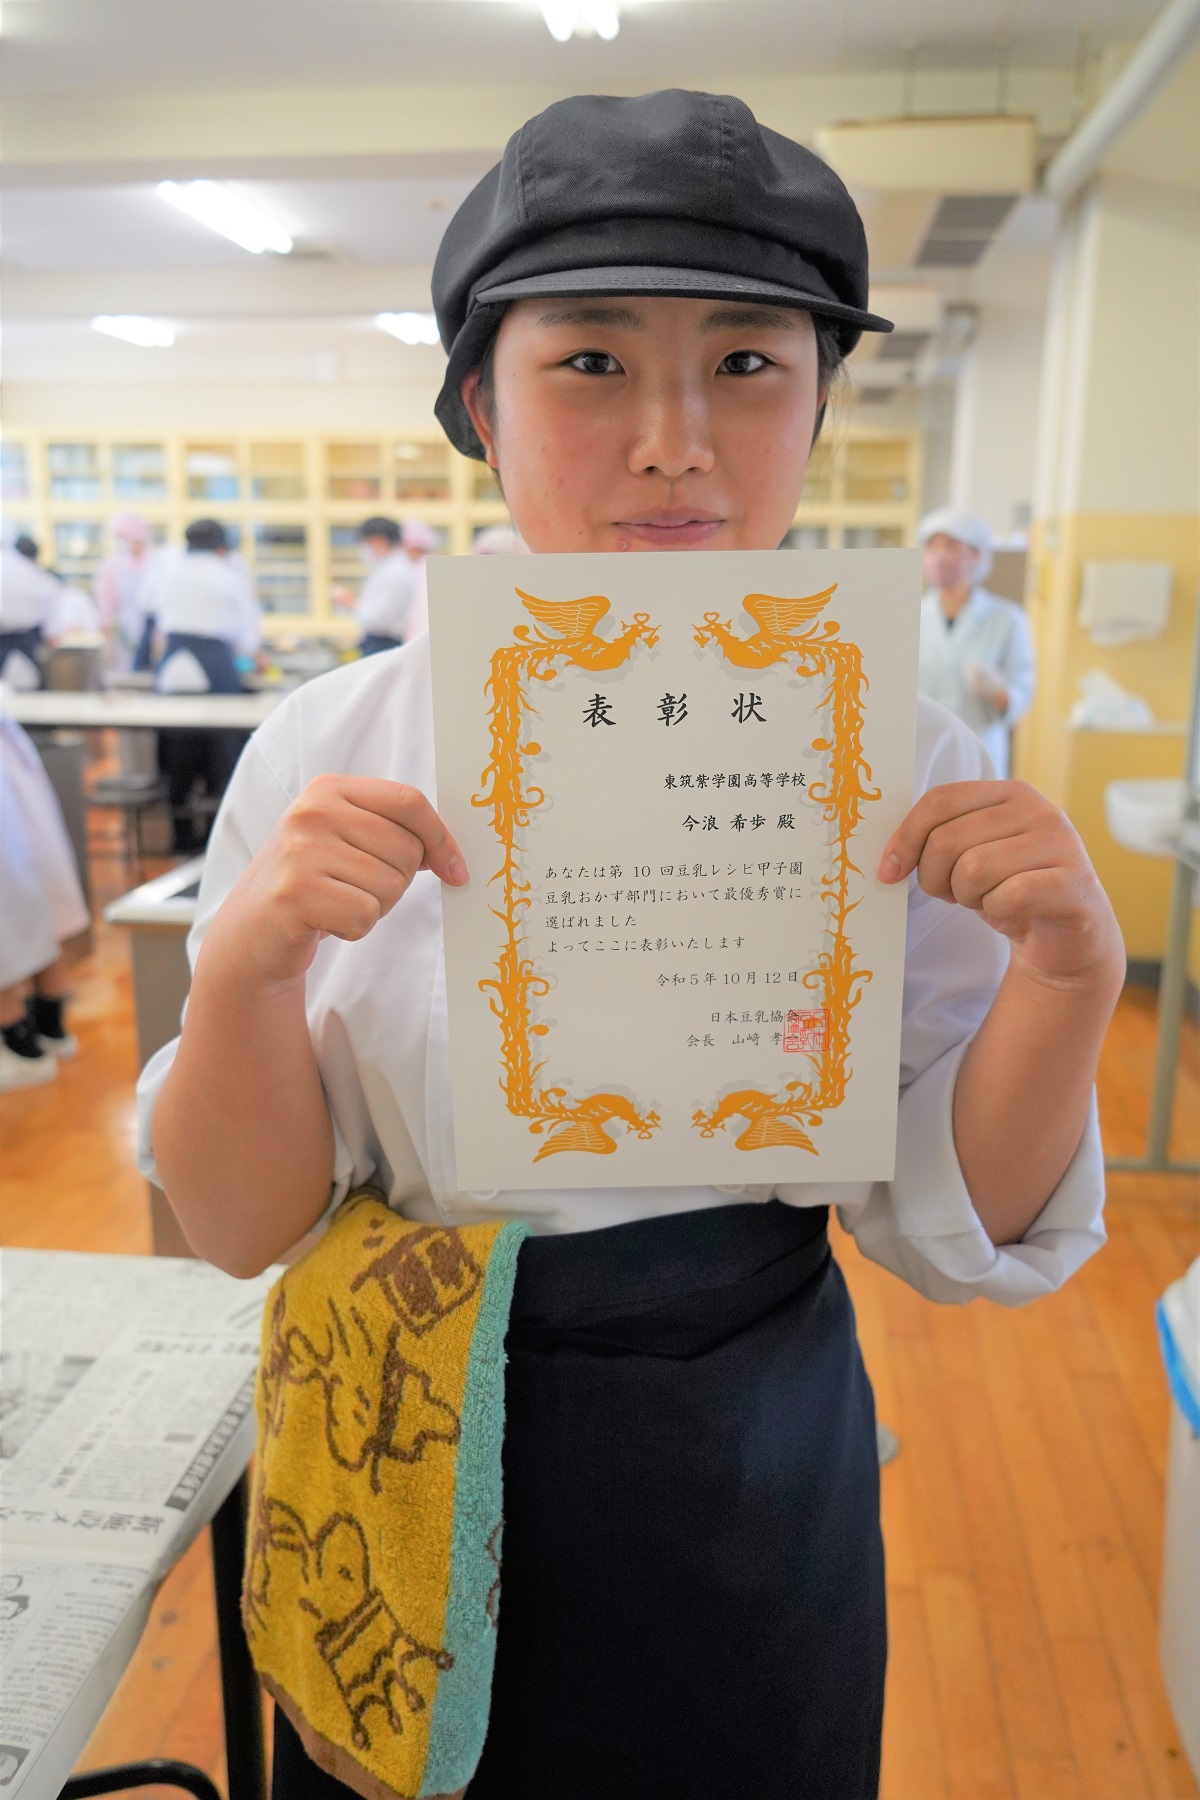 表彰状
東筑紫学園高等学校
今浪 希歩 殿
あなたは第 10 回豆乳レシピ甲子園
豆乳おかず部門において最優秀賞に
選ばれました
よってここに表彰いたします
令和5年10月12日
日本豆乳協会
会長 山﨑 孝
新施設メド